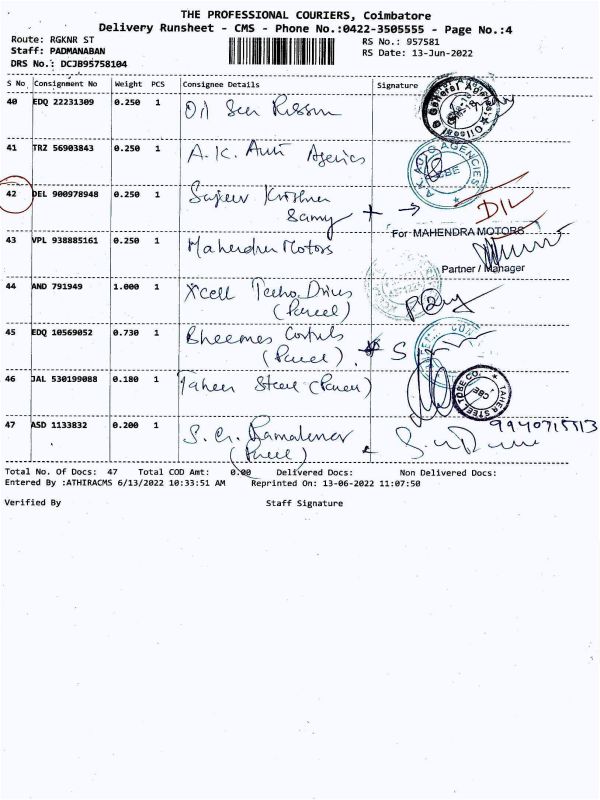 THE PROFESSIONAL COURIERS, Coimbatore
Delivery Runsheet - CMS - Phone No.:0422-3505555 - Page No.:4
Route: RGKNR ST RS No.: 957581
Staff: PADMANABAN RS Date: 13-Jun-2022
DRS No.: DCJB95758104
S No Consignment No Weight PCS Consignee Details Signature
40 EDQ 22231309 0.250 1 Oil Seer
41 TRZ 56903843 0.250 1 A.K. Auto Agencies
42 DEL 900978948 0.250 1 Krishna
Samy D/L
For MAHENDRA MOTORS
43 VPL 938885161 0.250 1 Mahendra Motors
Partner / Manager
44 AND 791949 1.000 1 Xcell Techno Drives
(Parcel)
45 EDQ 10569052 0.730 1 Bheemas
(Parcel) S
46 JAL 530199088 0.180 1 Taher Steel (Parcel)
TAHER STEEL TUBE CO. CBE
47 ASD 1133832 0.200 1 S. G. 9940715513
(Parcel)
Total No. Of Docs: 47 Total COD Amt: 0.00 Delivered Docs: Non Delivered Docs:
Entered By :ATHIRACMS 6/13/2022 10:33:51 AM Reprinted On: 13-06-2022 11:07:50
Verified By Staff Signature